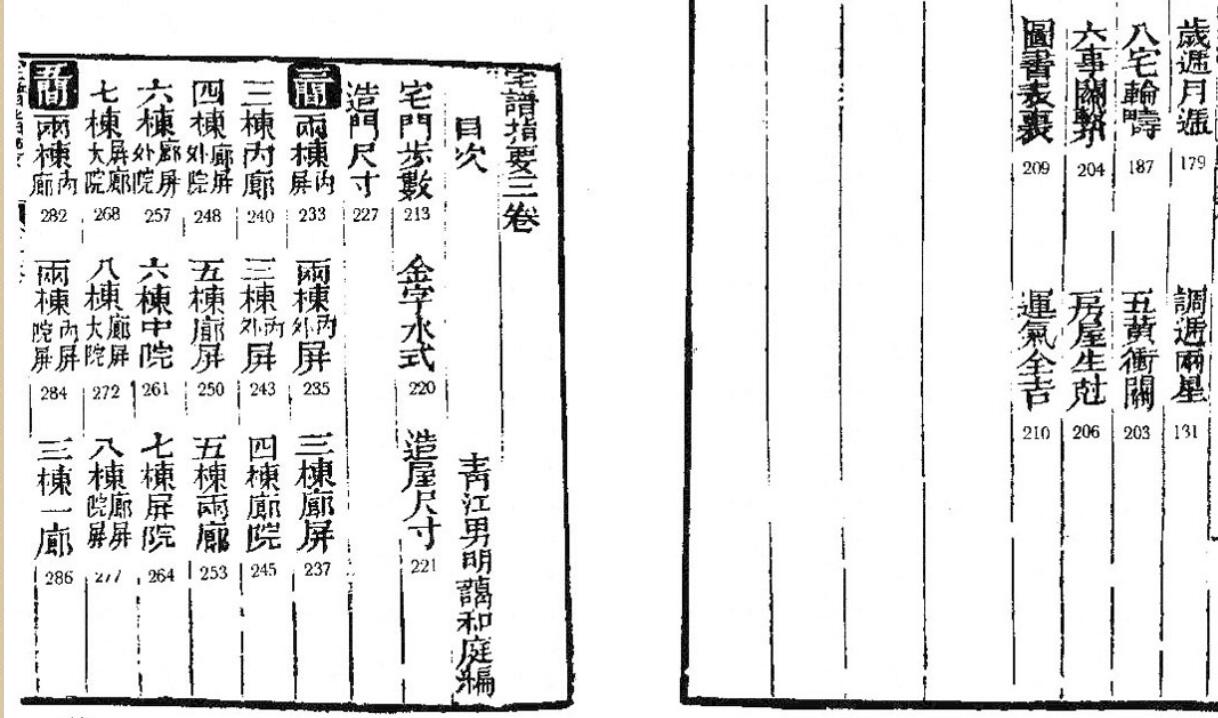 歲遞月遞 179 調遞兩星 131
八宅輪疇 187 五黃衝關 203
六事關 204 房屋生尅 206
圖書表裏 209 運氣全吉 210
宅譜指要三卷
目次 青江男明謌和庭編
宅門步數 213 金字水式 220 造屋尺寸 221
造門尺寸 227
三間 兩棟內屏 233 兩棟內外屏 235 三棟廊屏 237
三棟內廊 240 三棟內外屏 243 四棟廊院 245
四棟廊屏外院 248 五棟廊屏 250 五棟兩廊 253
六棟廊屏外院 257 六棟中院 261 七棟屏院 264
七棟屏廊大院 268 八棟廊屏大院 272 八棟廊屏院屏 277
五間 兩棟內廊 282 兩棟內屏院屏 284 三棟一廊 286